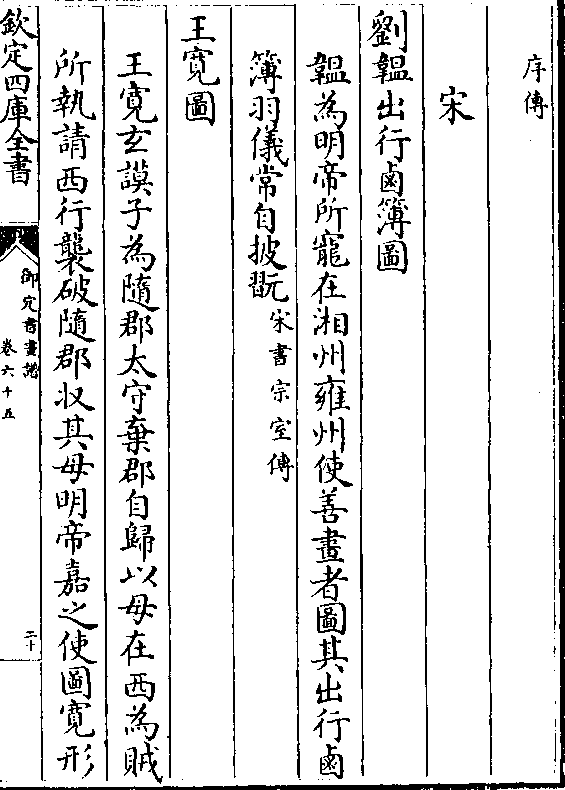 序傳
宋
劉韞出行鹵簿圖
韞為明帝所寵在湘州雍州使善畫者圖其出行鹵
簿羽儀常自披翫宋書宗室傳
王寛圖
王寛玄謨子為隨郡太守棄郡自歸以母在西為賊
所執請西行襲破隨郡収其母明帝嘉之使圖寛形
欽定四庫全書
御定書畫譜
卷六十五
二十